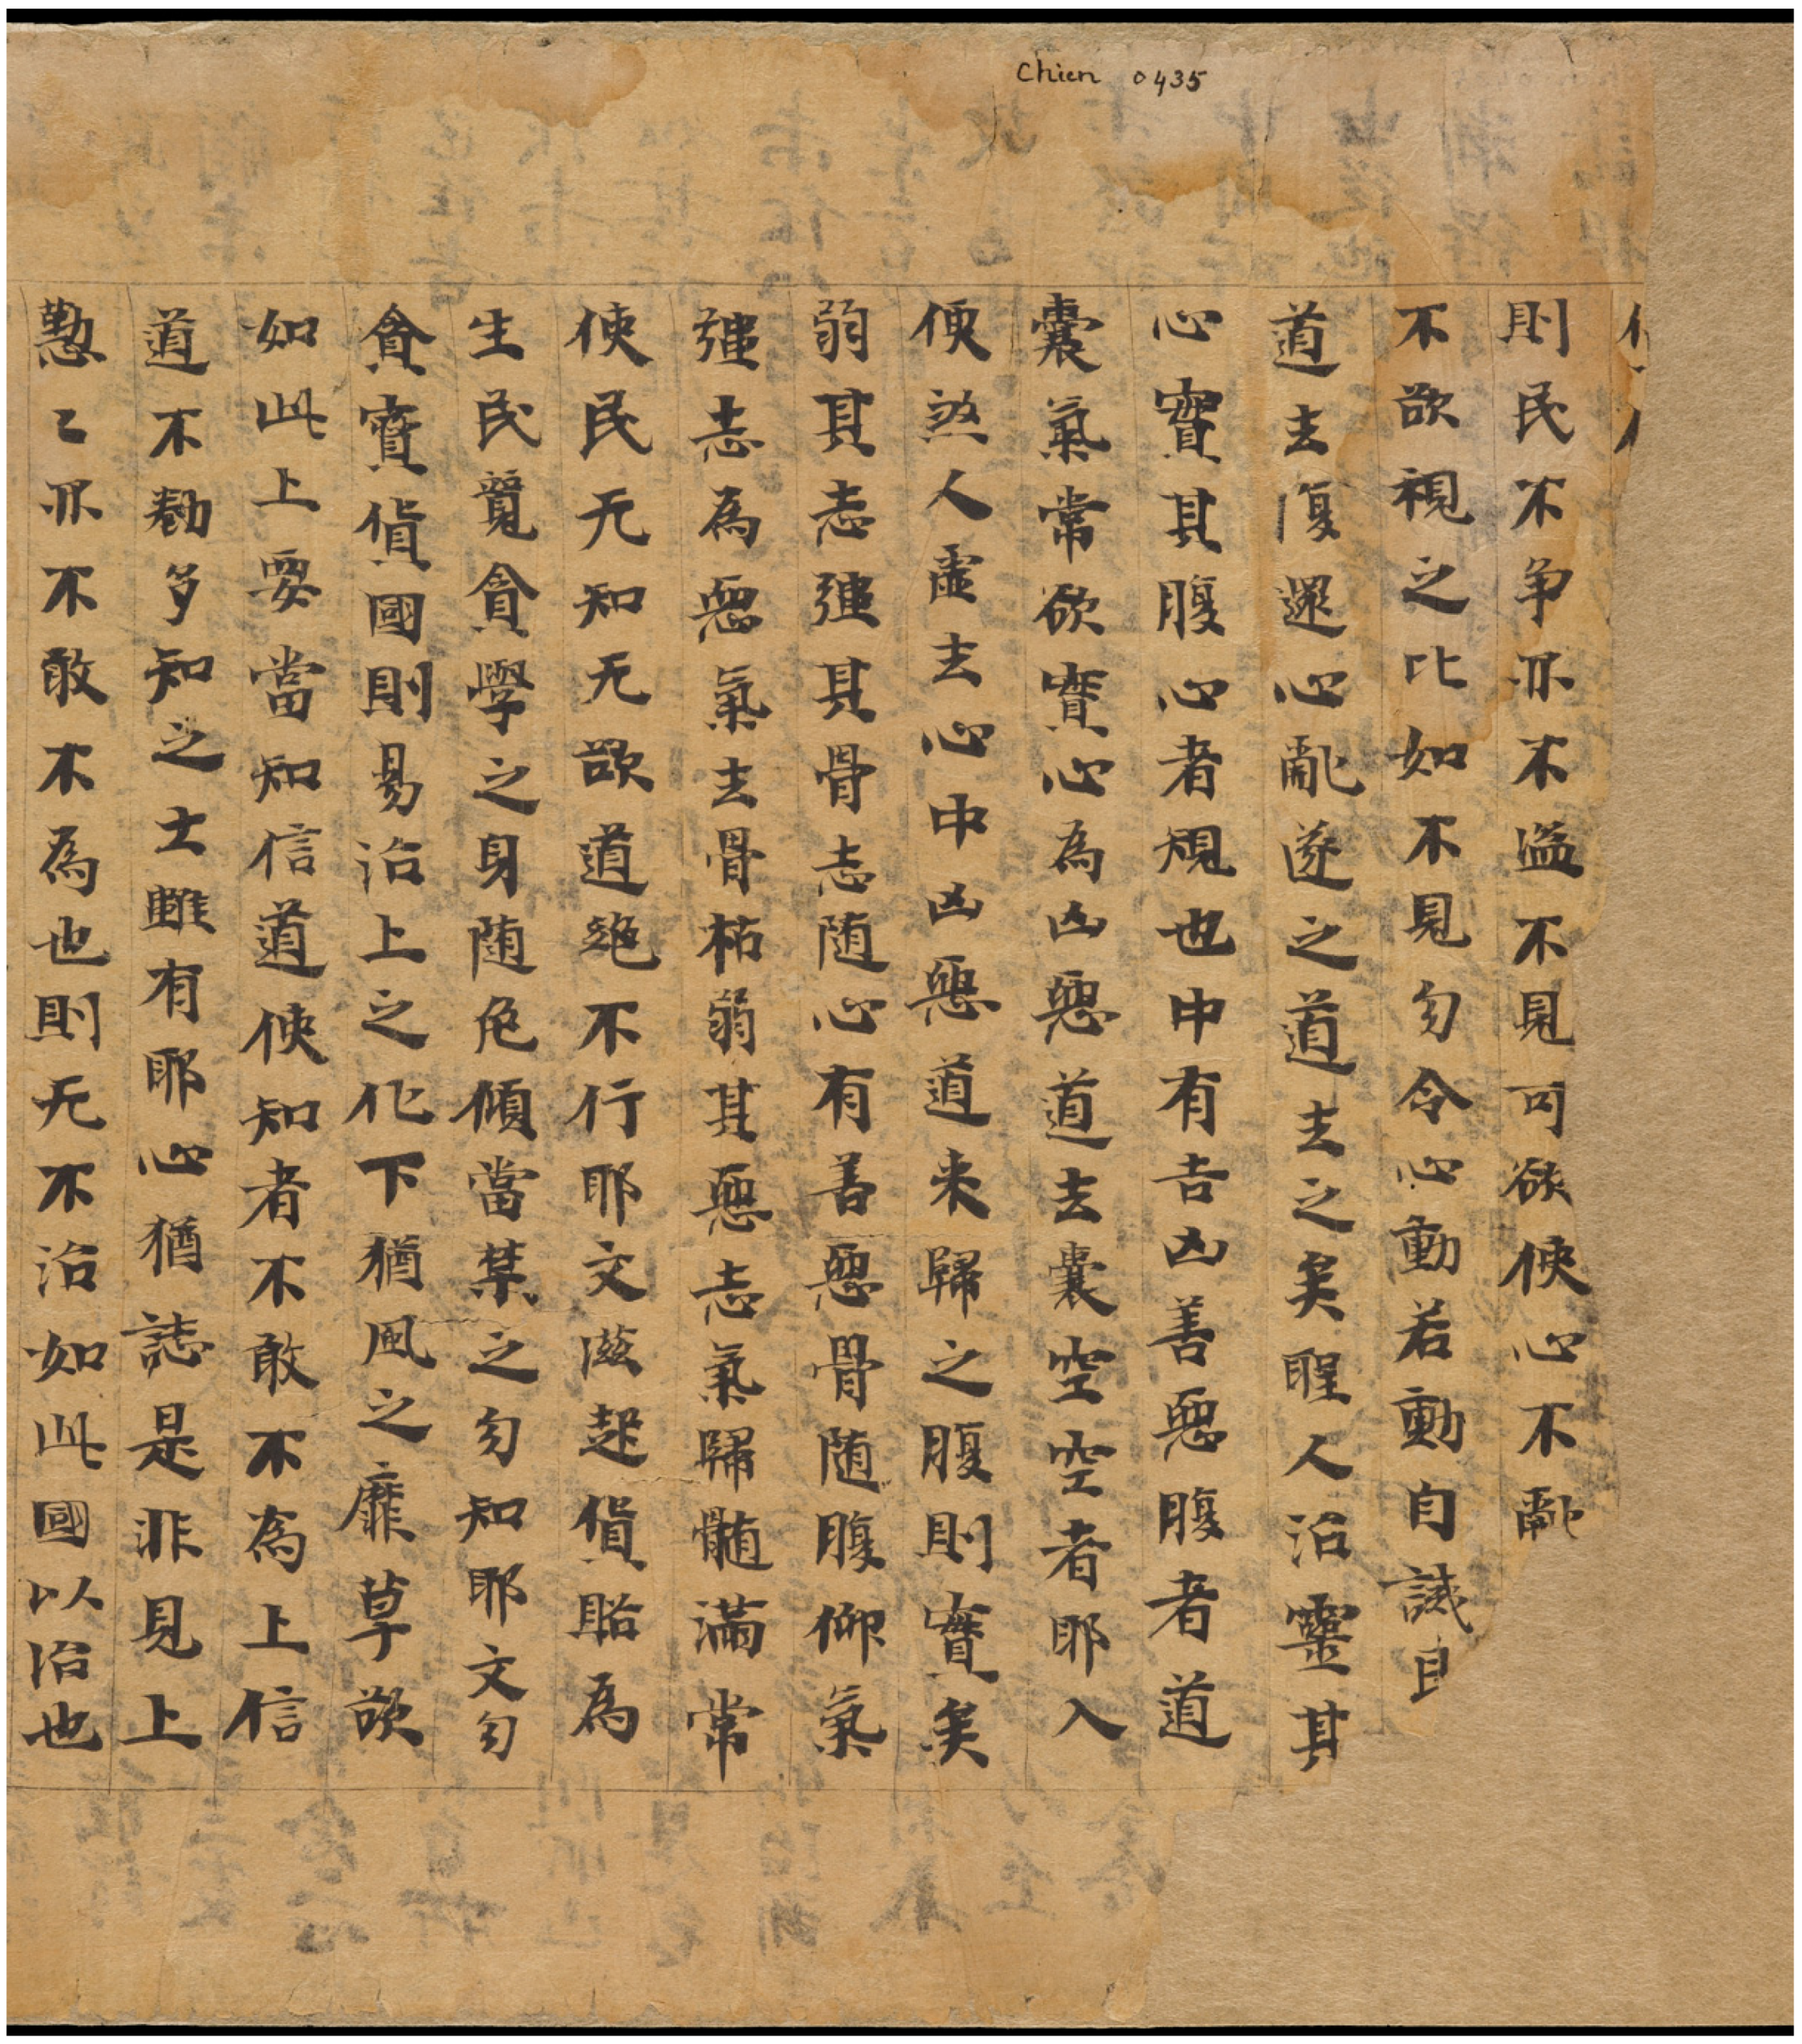 Chien 0435
則民不争亦不盜不見可欲使心不亂
不欲視之比如不見勿令心動若動自誡
道去復還心亂遂之道去之矣聖人治靈其
心實其腹心者規也中有吉凶善惡腹者道
囊氣常欲實心為凶惡道去囊空空者耶入
便煞人虛去心中凶惡道来歸之腹則實矣
弱其志彊其骨志随心有善惡骨随腹仰氣
彊志為惡氣去骨枯弱其惡志氣歸髓滿常
使民无知无欲道絶不行耶文滋起貨賂為
生民覓貪學之身随危傾當禁之勿知耶文勿
貪寶貨國則易治上之化下猶風之靡草欲
如此上要當知信道使知者不敢不為上信
道不勸多知之士雖有耶心猶誌是非見上
懃〻亦不敢不為也則无不治如此國以治也